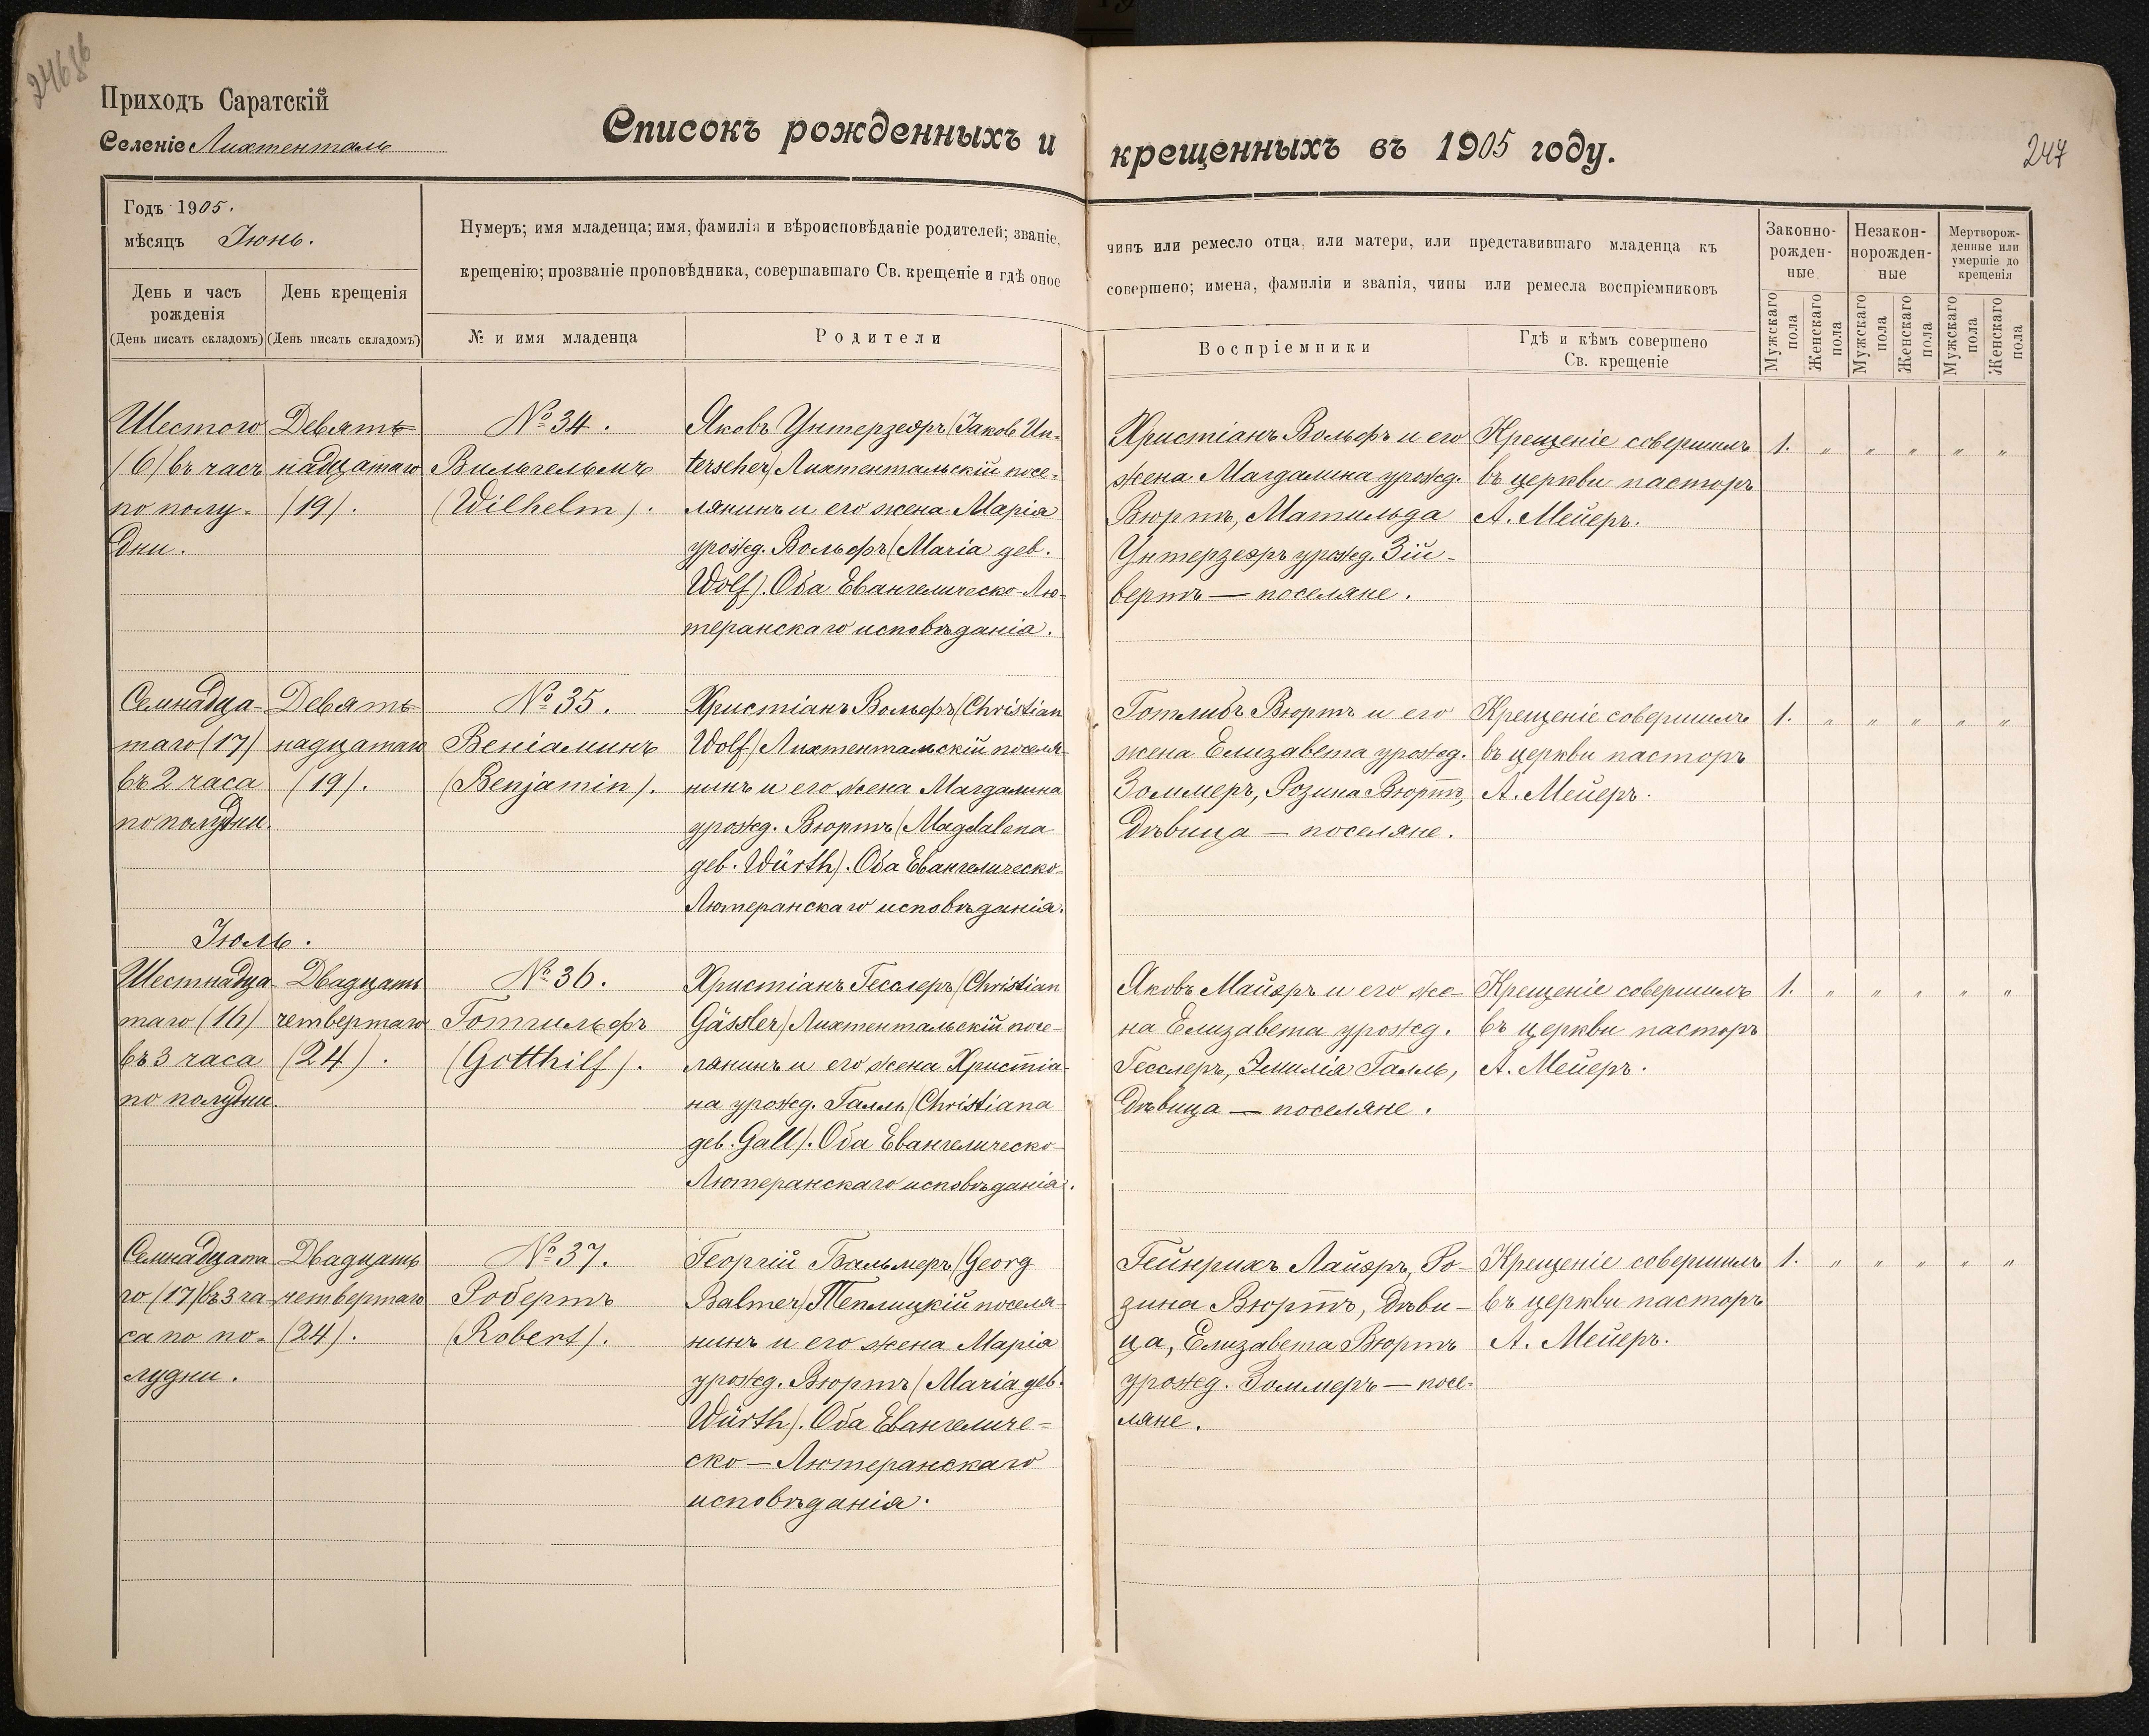 Приходъ Саратскій
Селеніе Лихтенталь
Списокъ рожденныхъ и крещенныхъ въ 1905 году.
247
Годъ 1905.
мѣсяцъ Іюнь.
День и часъ рожденія
(День писать складомъ)
День крещенія
(День писать складомъ)
Нумеръ; имя младенца; имя, фамилія и вѣроисповѣданіе родителей; званіе, чинъ или ремесло отца, или матери, или представившаго младенца къ
крещенію; прозваніе проповѣдника, совершавшаго Св. крещеніе и гдѣ оное совершено; имена, фамиліи и званія, чины или ремесла воспріемниковъ
№ и имя младенца
Родители
Воспріемники
Гдѣ и кѣмъ совершено
Св. крещеніе
Законно-
рожден-
ные
Незакон-
норожден-
ные
Мертворож-
денные или
умершіе до
крещенія
Мужскаго пола
Женскаго пола
Мужскаго пола
Женскаго пола
Мужскаго пола
Женскаго пола
Шестого
(6) въ часъ
по полу-
дни.
Девять
надцатаго
(19).
№ 34.
Вильгельмъ
(Wilhelm).
Яковъ Унтерзеэръ (Jakob Un-
terseher) Лихтентальскій посе-
лянинъ и его жена Марія
урожд. Вольфъ (Maria geb.
Wolf). Оба Евангелическо-Лю-
теранскаго исповѣданія.
Христіанъ Вольфъ и его
жена Магдалина урожд.
Вюртъ, Матильда
Унтерзеэръ урожд. Зій-
вертъ — поселяне.
Крещеніе совершилъ
въ церкви пасторъ
А. Мейеръ.
1. „ „ „ „ „
Семнадца-
таго (17)
въ 2 часа
по полудни.
Девять
надцатаго
(19).
№ 35.
Веніаминъ
(Benjamin).
Христіанъ Вольфъ (Christian
Wolf) Лихтентальскій поселя-
нинъ и его жена Магдалина
урожд. Вюртъ (Magdalena
geb. Würth). Оба Евангелическо-
Лютеранскаго исповѣданія.
Готлибъ Вюртъ и его
жена Елизавета урожд.
Золлмеръ, Розина Вюртъ,
дѣвица — поселяне.
Крещеніе совершилъ
въ церкви пасторъ
А. Мейеръ.
1. „ „ „ „ „
Іюль.
Шестнадца-
таго (16)
въ 3 часа
по полудни.
Двадцать
четвертаго
(24).
№ 36.
Готгильфъ
(Gotthilf).
Христіанъ Гесслеръ (Christian
Gässler) Лихтентальскій посе-
лянинъ и его жена Христіа-
на урожд. Галль (Christiana
geb. Gall). Оба Евангелическо-
Лютеранскаго исповѣданія.
Яковъ Майэръ и его же-
на Елизавета урожд.
Гесслеръ, Эмилія Галль,
дѣвица — поселяне.
Крещеніе совершилъ
въ церкви пасторъ
А. Мейеръ.
1. „ „ „ „ „
Семнадцата
го (17) въ 3 ча
са по по-
лудни.
Двадцать
четвертаго
(24).
№ 37.
Робертъ
(Robert).
Георгій Бальмеръ (Georg
Balmer) Теплицкій поселя-
нинъ и его жена Марія
урожд. Вюртъ (Maria geb.
Würth). Оба Евангеличе-
ско — Лютеранскаго
исповѣданія.
Гейнрихъ Лайэръ, Ро-
зина Вюртъ, дѣви-
ца, Елизавета Вюртъ
урожд. Золлмеръ — посе-
ляне.
Крещеніе совершилъ
въ церкви пасторъ
А. Мейеръ.
1. „ „ „ „ „